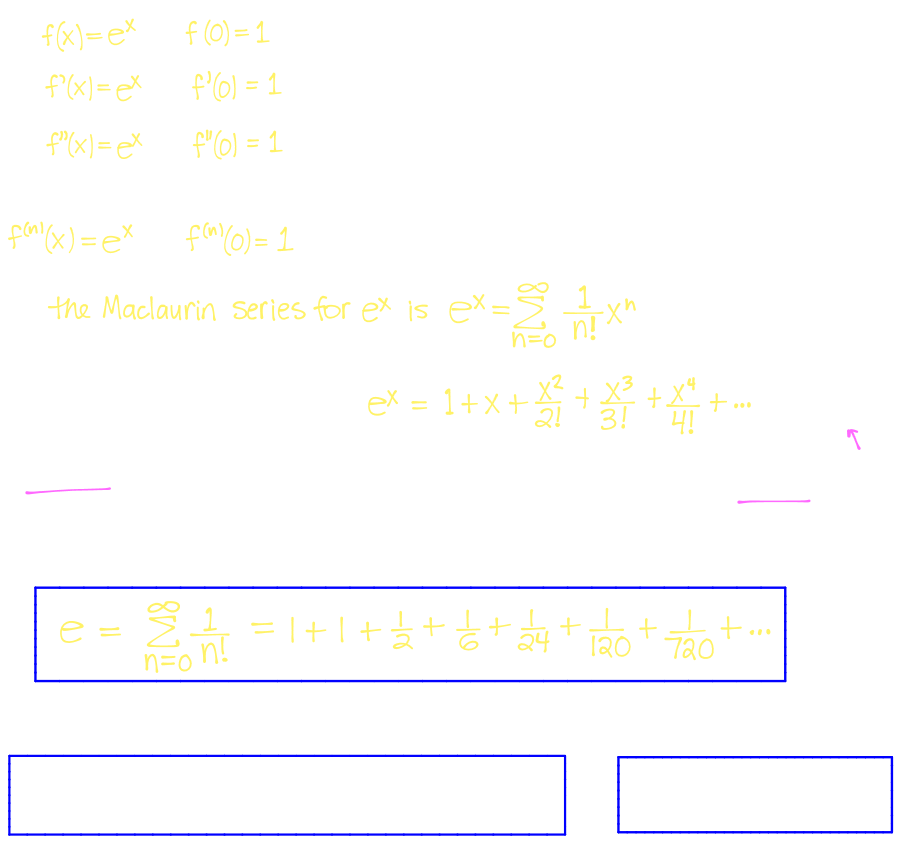 f(x)=eˣ f(0)=1
f'(x)=eˣ f'(0)=1
f"(x)=eˣ f"(0)=1
f⁽ⁿ⁾(x)=eˣ f⁽ⁿ⁾(0)=1
the Maclaurin series for eˣ is eˣ=∑_{n=0}^{∞} 1/n! xⁿ
eˣ = 1+x+x²/2!+x³/3!+x⁴/4!+...
e = ∑_{n=0}^{∞} 1/n! = 1+1+1/2+1/6+1/24+1/120+1/720+...